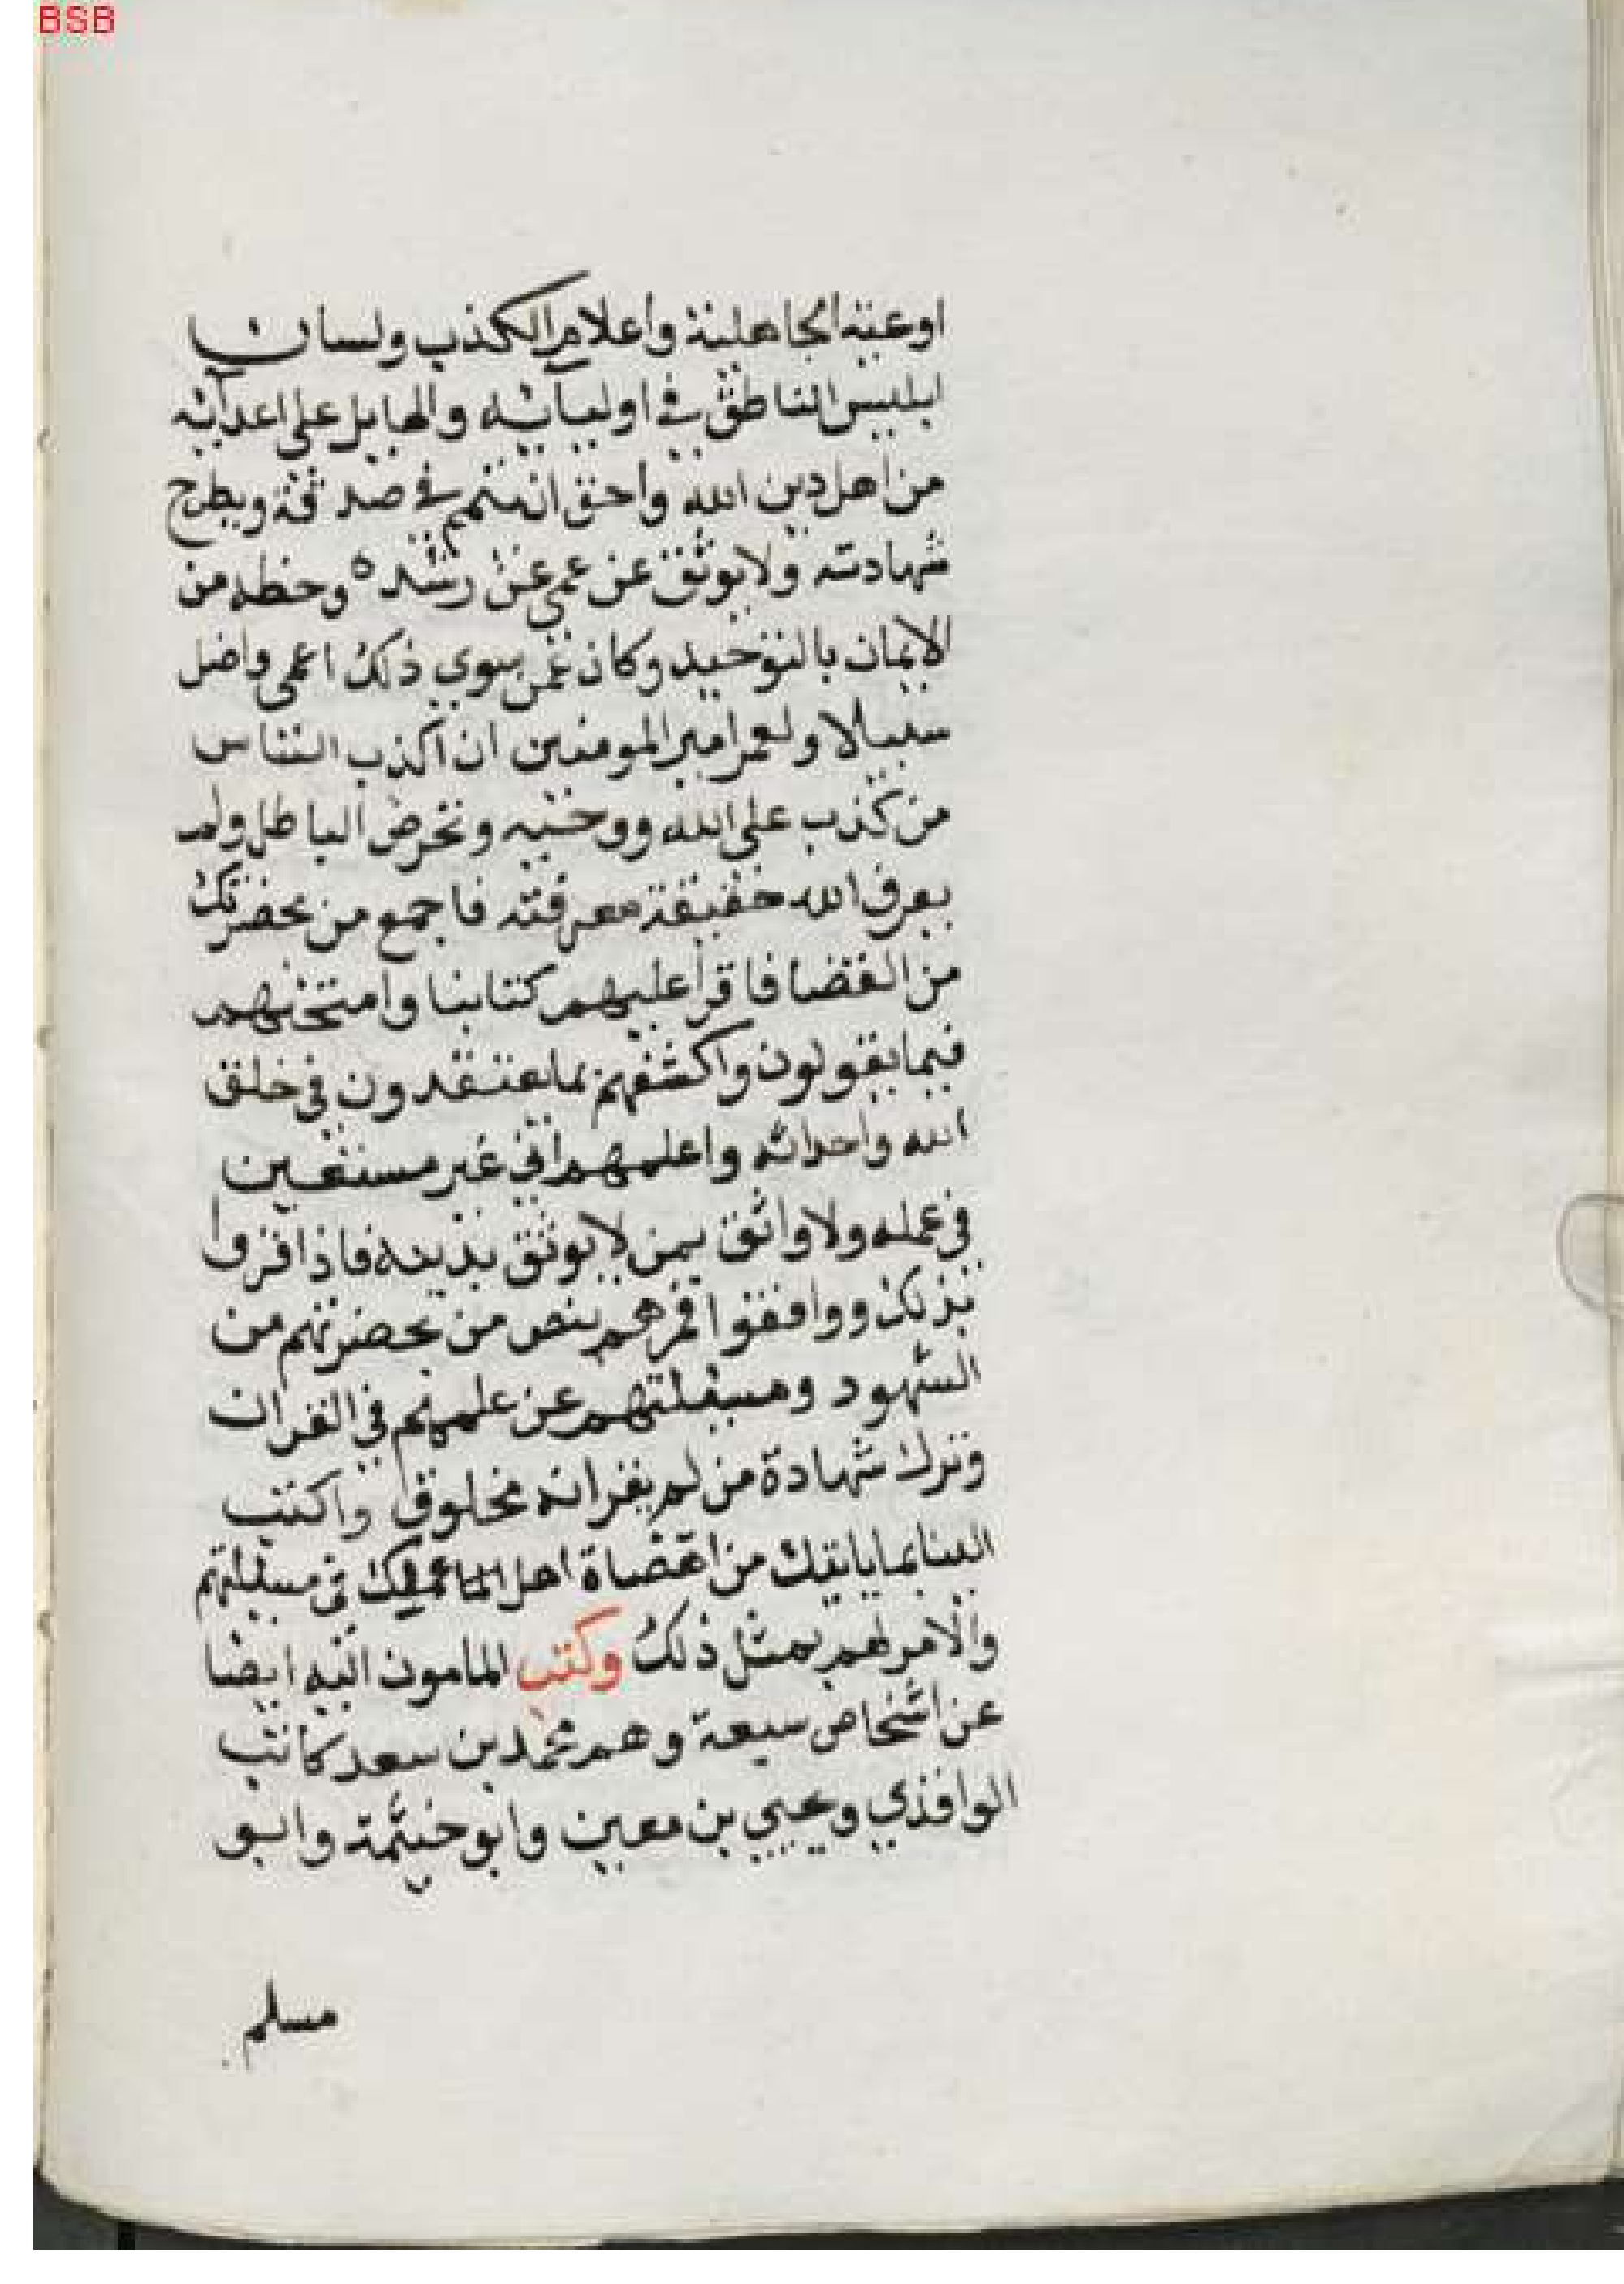 BSB
اوعية الجاهلية وأعلام الكذب ولسان
ابليس الناطق في اوليائه والهايل على اعدائه
من اهل دين الله وأحق ان يتهم في صدقة ويطرح
شهادته ولا يوثق عن عمى عن رشده وحظه من
الايمان بالتوحيد وكان عمن سوي ذلك اعمى واضل
سبيلا ولعمر امير المومنين ان اكذب الناس
من كذب على الله ووحيه وتخرص الباطل ولم
يعرف الله حقيقة معرفته فاجمع من بحضرتك
من القضا فاقرأ عليهم كتابنا وامتحنهم
فيما يقولون واكشفهم عما يعتقدون في خلق
الله واحداثه واعلمهم اني غير مستعين
في عمله ولا واثق بمن لا يوثق بدينه فاذا اقروا
بذلك ووافقوا فمرهم بنص من بحضرتهم من
الشهود ومسئلتهم عن علمهم في القران
وترك شهادة من لم يقر انه مخلوق واكتب
الينا بما ياتيك من قضاة اهل عملك في مسئلتهم
والامر لهم بمثل ذلك وكتب المامون اليه ايضا
عن اشخاص سبعة وهم محمد بن سعد كاتب
الواقدي ويحيي بن معين وابو خيثمة وابو
مسلم